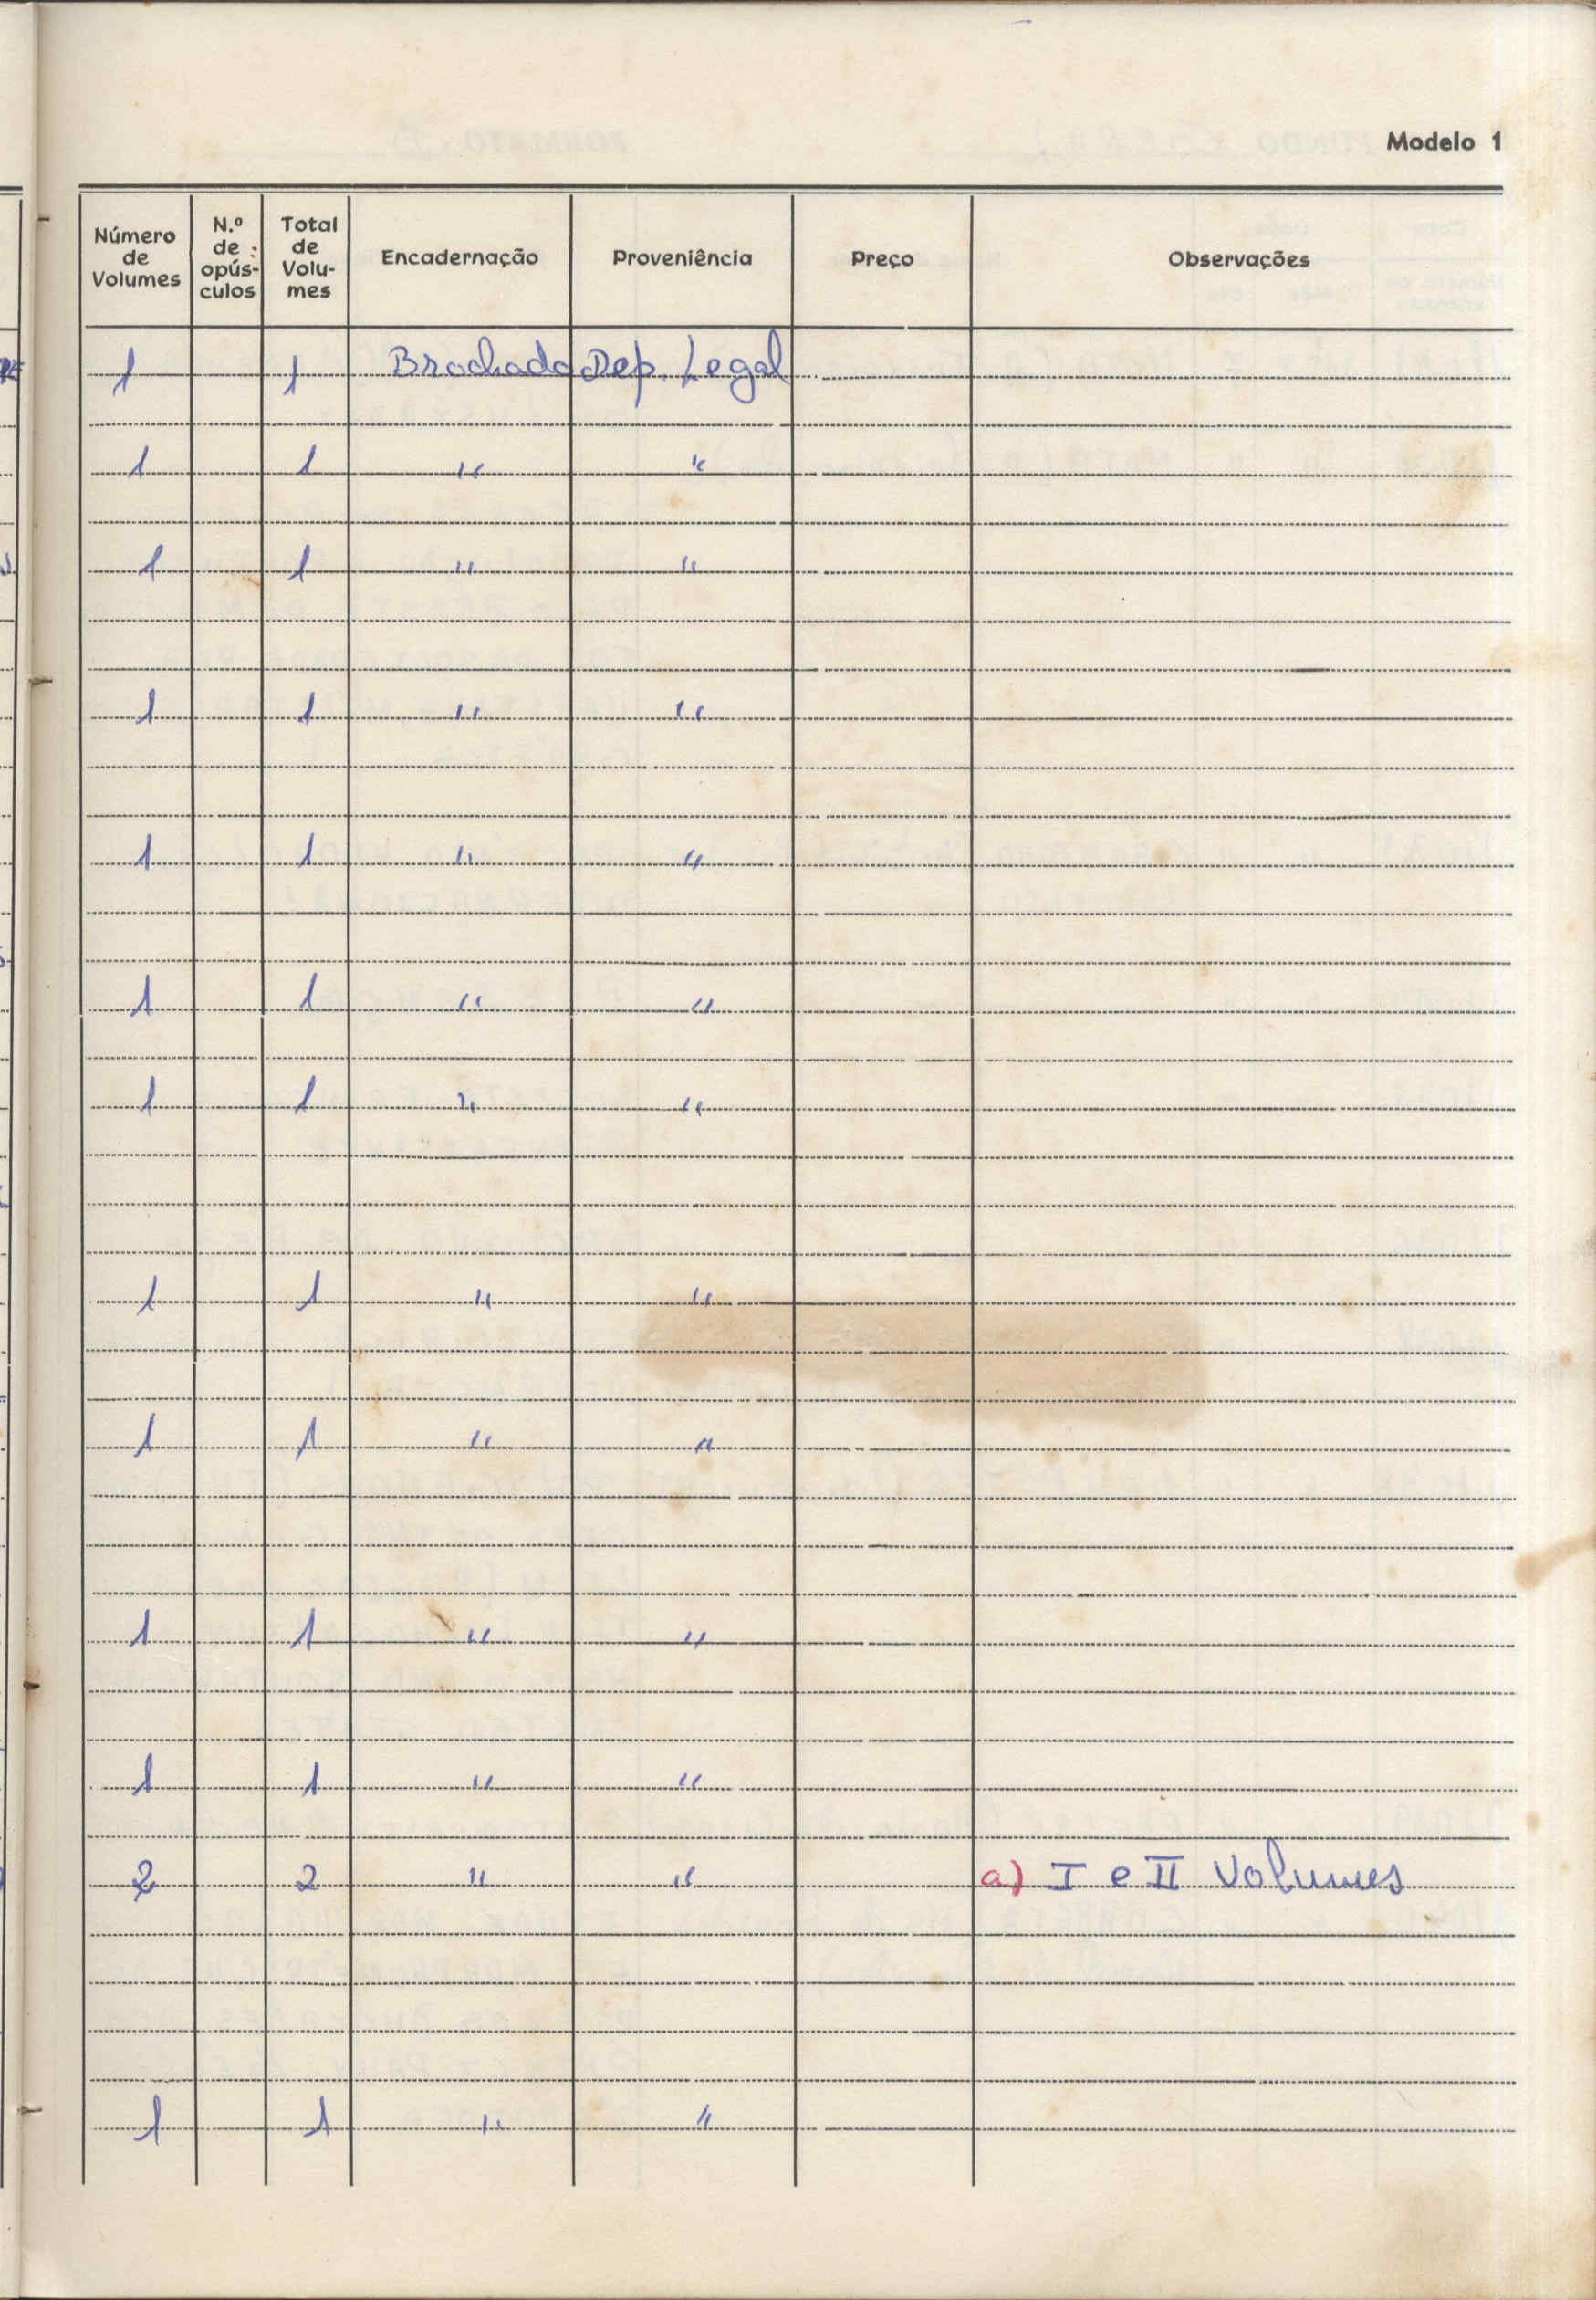 Modelo 1
Número de Volumes N.º de opús-culos Total de Volu-mes Encadernação Proveniência Preço Observações
1 1 Brochado Dep. Legal
1 1 " "
1 1 " "
1 1 " "
1 1 " "
1 1 " "
1 1 " "
1 1 " "
1 1 " "
1 1 " "
1 1 " "
2 2 " " a) I e II Volumes
1 1 " "